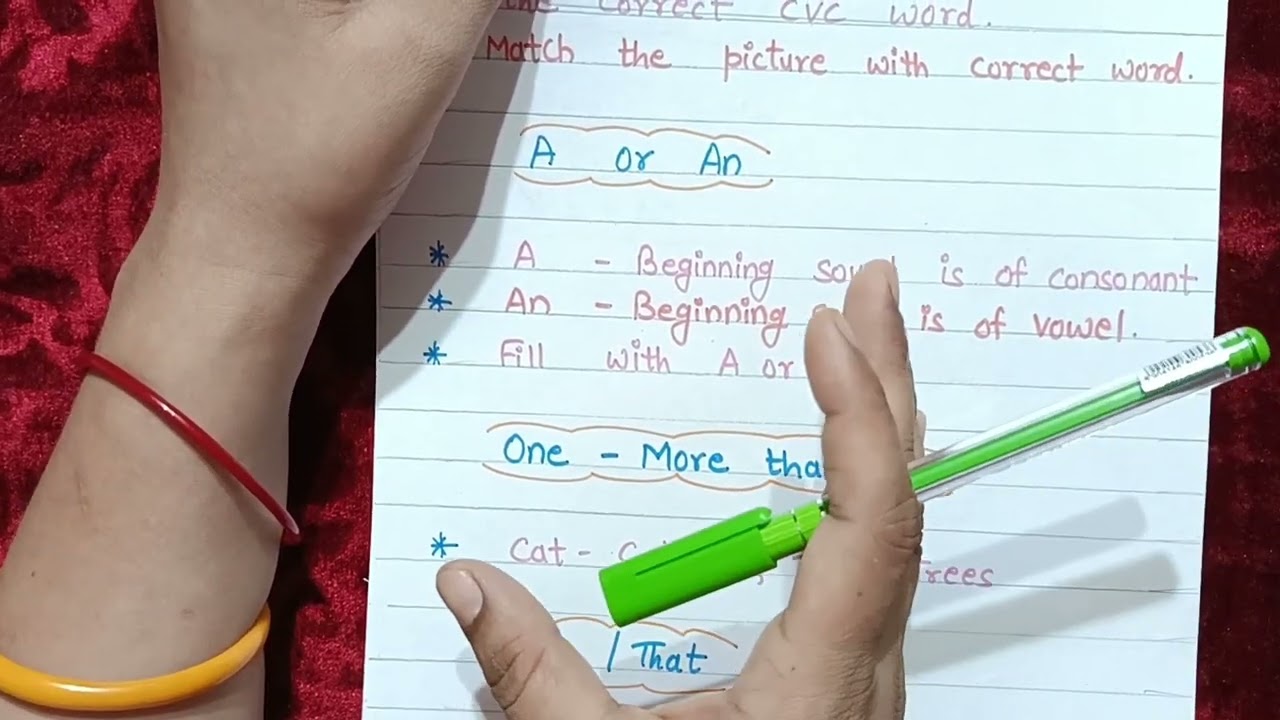 the correct CVC word.
Match the picture with correct word.
A or An
* A - Beginning sound is of consonant
* An - Beginning is of vowel.
* Fill with A or
One - More tha
* Cat - Trees
/ That